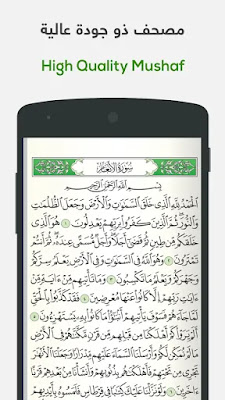 مصحف ذو جودة عالية
High Quality Mushaf
سُورَةُ الأَنْعَامِ
بِسْمِ ٱللَّهِ ٱلرَّحْمَٰنِ ٱلرَّحِيمِ
ٱلْحَمْدُ لِلَّهِ ٱلَّذِي خَلَقَ ٱلسَّمَٰوَٰتِ وَٱلْأَرْضَ وَجَعَلَ ٱلظُّلُمَٰتِ
وَٱلنُّورَ ثُمَّ ٱلَّذِينَ كَفَرُوا۟ بِرَبِّهِمْ يَعْدِلُونَ ١ هُوَ ٱلَّذِي
خَلَقَكُم مِّن طِينٍ ثُمَّ قَضَىٰٓ أَجَلًا وَأَجَلٌ مُّسَمًّى عِندَهُۥ ثُمَّ أَنتُمْ
تَمْتَرُونَ ٢ وَهُوَ ٱللَّهُ فِي ٱلسَّمَٰوَٰتِ وَفِي ٱلْأَرْضِ يَعْلَمُ سِرَّكُمْ
وَجَهْرَكُمْ وَيَعْلَمُ مَا تَكْسِبُونَ ٣ وَمَا تَأْتِيهِم مِّنْ ءَايَةٍ مِّنْ
ءَايَٰتِ رَبِّهِمْ إِلَّا كَانُوا۟ عَنْهَا مُعْرِضِينَ ٤ فَقَدْ كَذَّبُوا۟ بِٱلْحَقِّ
لَمَّا جَآءَهُمْ فَسَوْفَ يَأْتِيهِمْ أَنۢبَٰٓؤُا۟ مَا كَانُوا۟ بِهِۦ يَسْتَهْزِءُونَ
٥ أَلَمْ يَرَوْا۟ كَمْ أَهْلَكْنَا مِن قَبْلِهِم مِّن قَرْنٍ مَّكَّنَّٰهُمْ فِي ٱلْأَرْضِ
مَا لَمْ نُمَكِّن لَّكُمْ وَأَرْسَلْنَا ٱلسَّمَآءَ عَلَيْهِم مِّدْرَارًا وَجَعَلْنَا
ٱلْأَنْهَٰرَ تَجْرِي مِن تَحْتِهِمْ فَأَهْلَكْنَٰهُم بِذُنُوبِهِمْ وَأَنشَأْنَا مِنۢ بَعْدِهِمْ
قَرْنًا ءَاخَرِينَ ٦ وَلَوْ نَزَّلْنَا عَلَيْكَ كِتَٰبًا فِي قِرْطَاسٍ فَلَمَسُوهُ بِأَيْدِيهِمْ